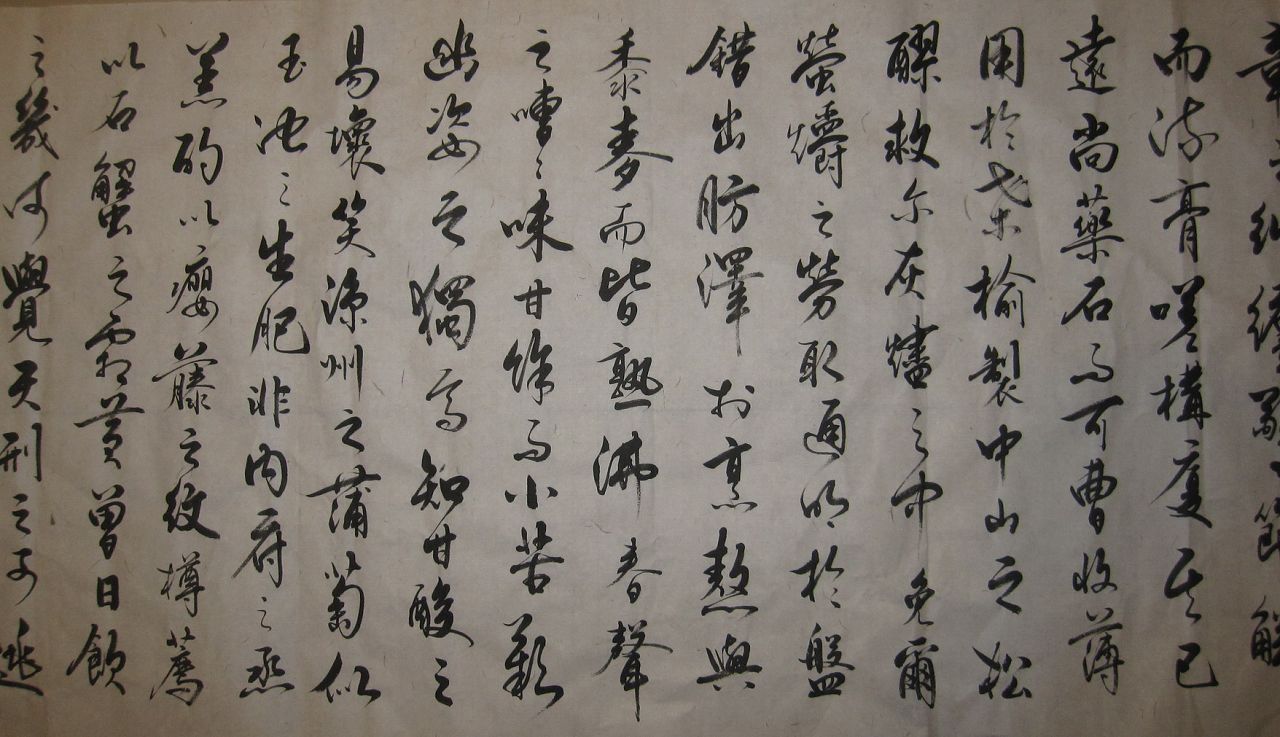 章之糾纏驚節解
而流膏嗟構廈其已
遠尚藥石而可曹收薄
用於桑榆製中山之松
醪救尔灰燼之中免爾
螢爝之勞取通明於盤
錯出肪澤於烹熬與
黍麥而皆熟沸舂聲
之嘈〻味甘餘而小苦歎
幽姿之獨高知甘酸之
易壞笑涼州之蒲萄似
玉池之生肥非內府之烝
羔酌以癭藤之紋樽薦
以石蟹之霜螯曾日飲
之幾何覺天刑之可逃